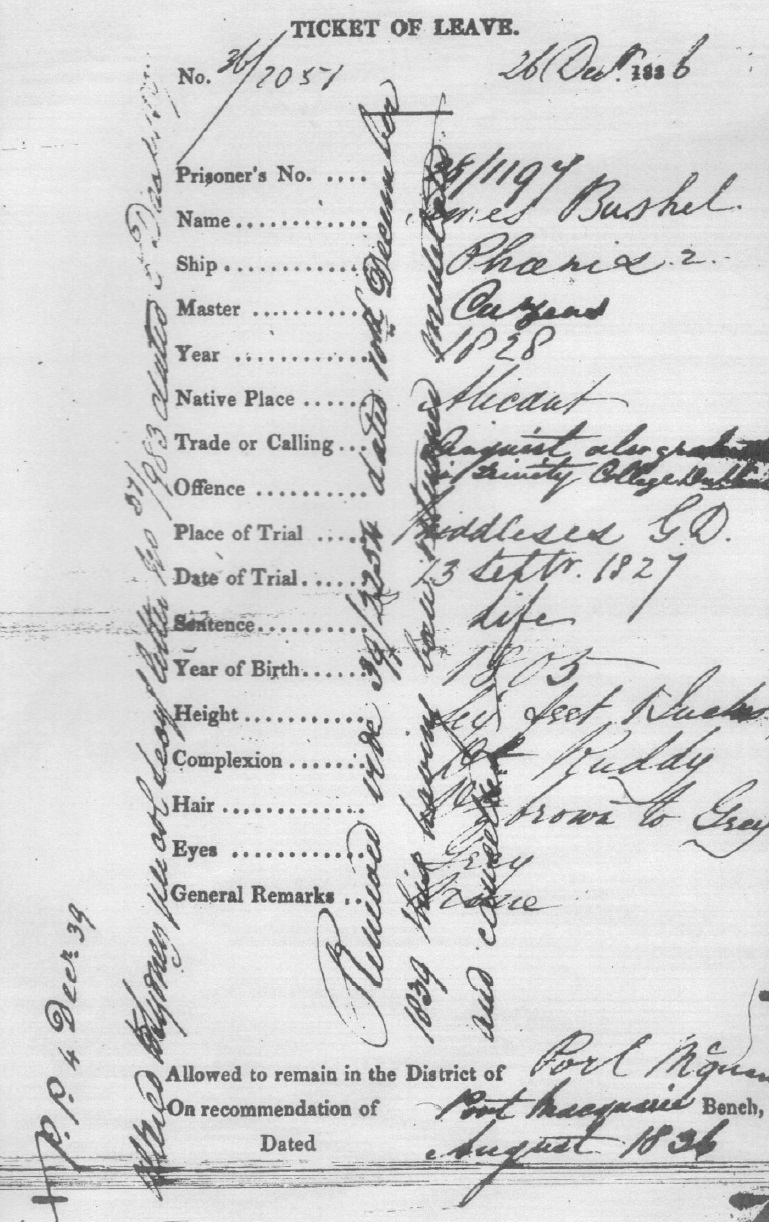 TICKET OF LEAVE.
No. 36/2051 26 Decr. 1836
Prisoner's No. .... 28/1197
Name ............ James Bushel.
Ship ............ Phoenix 2.
Master ..........
Year ............ 1828
Native Place ...... Alicant
Trade or Calling ... Linguist, also graduate
of Trinity College Dublin
Offence ..........
Place of Trial .... Middlesex G.D.
Date of Trial ...... 13 Septr. 1827
Sentence .......... Life
Year of Birth ...... 1805
Height ............ feet
Complexion ...... Ruddy
Hair ............ brown to Grey
Eyes ............ Grey
General Remarks .. None
Allowed to remain in the District of Port
On recommendation of Port Macquarie Bench,
Dated August 1836
Altered to Sydney letter No 37/983 dated
Renewed vide 39/3254 dated 10th December
1839 his having been
and
P.P. 4 Decr. 39